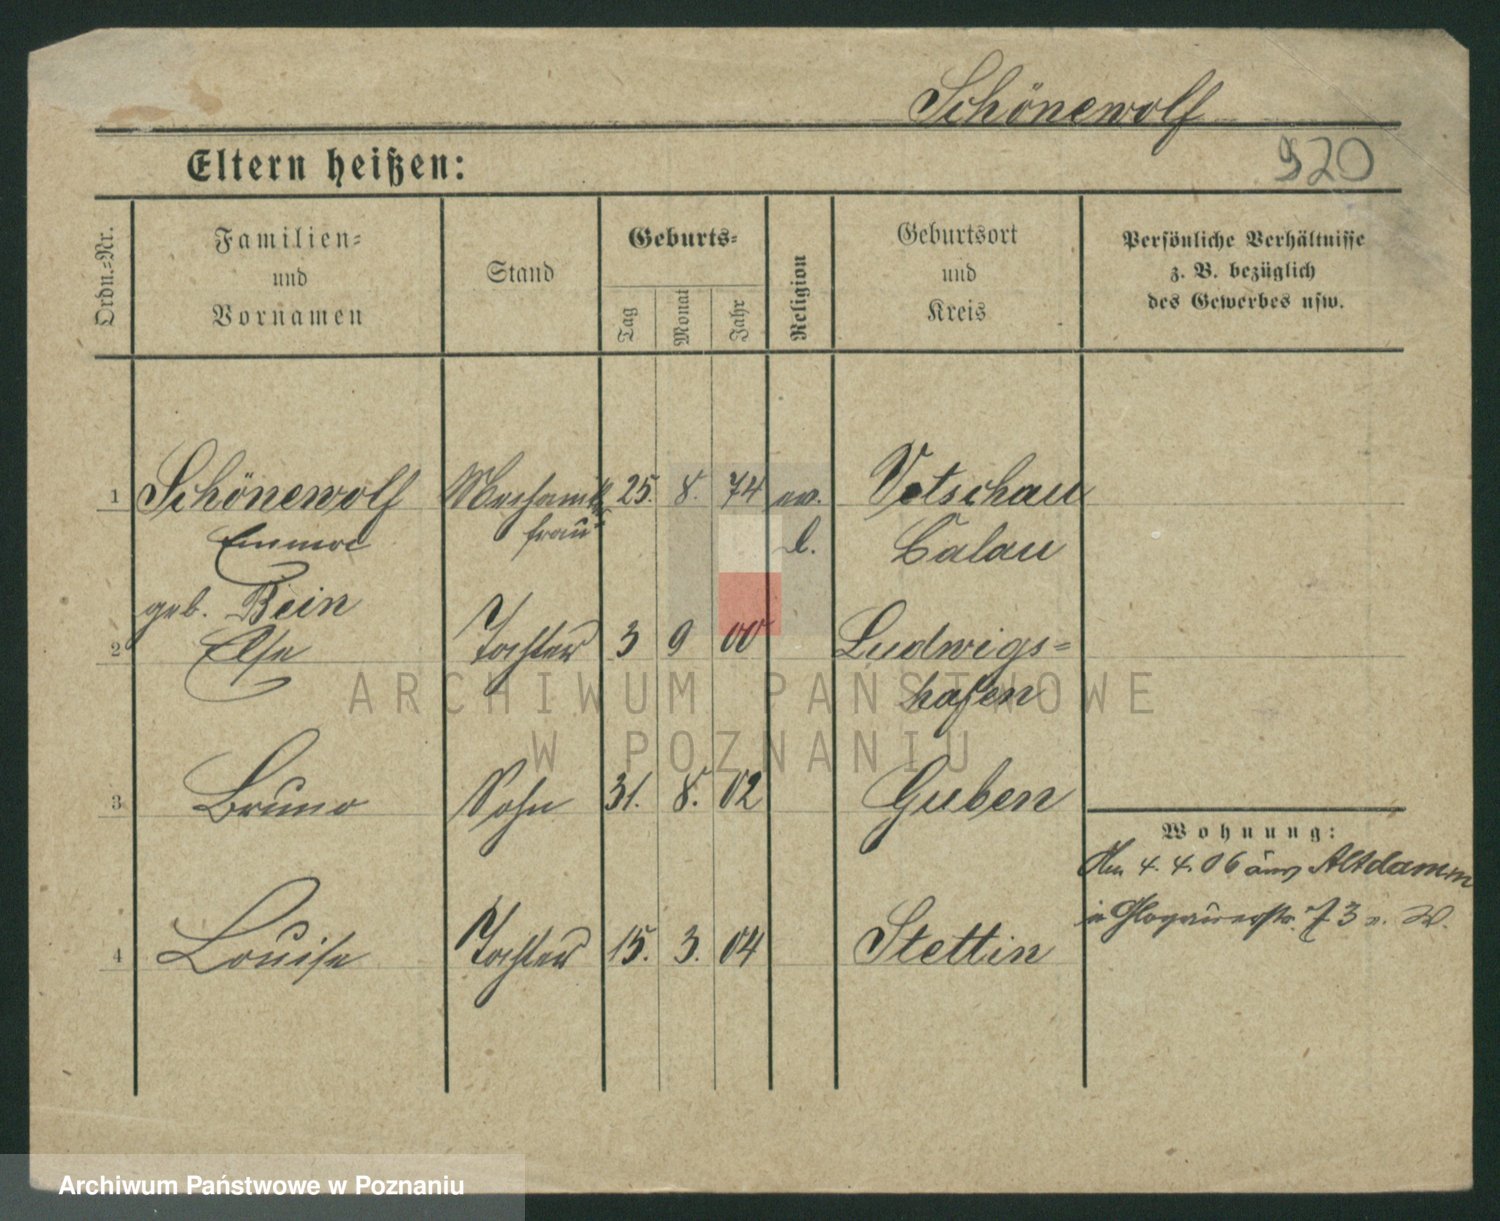 Schönewolf
920
Eltern heißen:
Ordn.=Nr.
Familien=
und
Vornamen
Stand
Geburts=
Tag
Monat
Jahr
Religion
Geburtsort
und
Kreis
Persönliche Verhältnisse
z. B. bezüglich
des Gewerbes usw.
1 Schönewolf 25. 8. 74 ev. Vetschau
Emma frau l. Calau
geb. Bein
2 Else Tochter 3 9 00 Ludwigs=
hafen
ARCHIWUM PAŃSTWOWE
W POZNANIU
3 Bruno Sohn 31. 8. 02 Guben
Wohnung:
4. 4. 06 aus Altdamm
in Glogauerstr. 73
4 Louise Tochter 15. 3. 04 Stettin
Archiwum Państwowe w Poznaniu